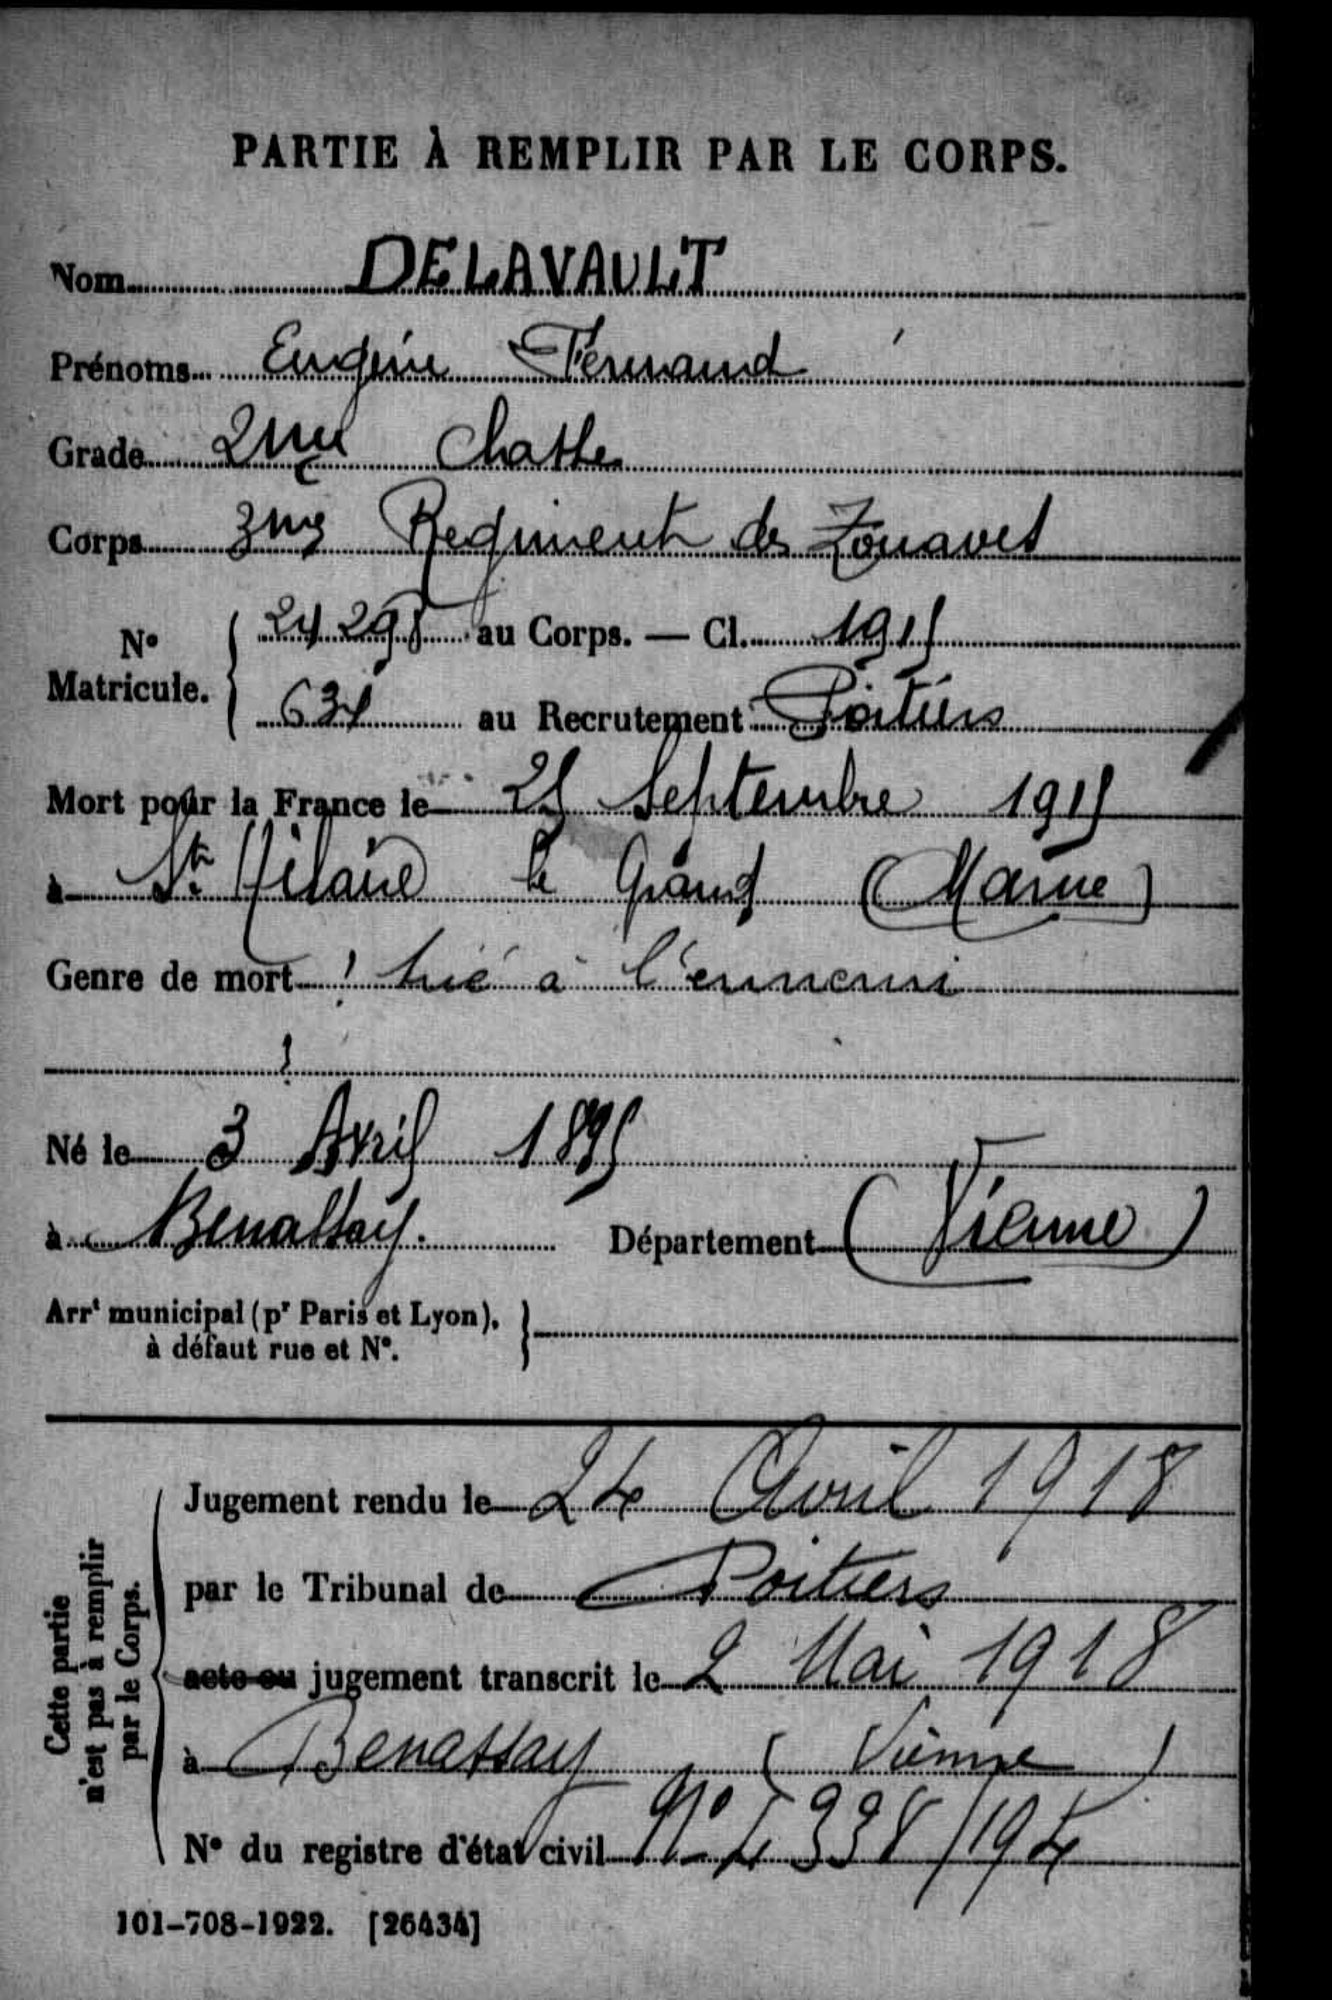 PARTIE À REMPLIR PAR LE CORPS.
Nom DELAVAULT
Prénoms Eugène Fernand
Grade 2me Classe
Corps 3me Regiment de Zouaves
N° Matricule. { 24 295 au Corps. — Cl. 1915
634 au Recrutement Poitiers
Mort pour la France le 25 Septembre 1915
à St Hilaire le Grand (Marne)
Genre de mort tué à l'ennemi
Né le 3 Avril 1895
à Benassay. Département (Vienne)
Arrt municipal (pr Paris et Lyon), }
à défaut rue et N°.
Cette partie n'est pas à remplir par le Corps.
Jugement rendu le 24 Avril 1918
par le Tribunal de Poitiers
acte ou jugement transcrit le 2 Mai 1918
à Benassay (Vienne)
N° du registre d'état civil
101-708-1922. [26434]